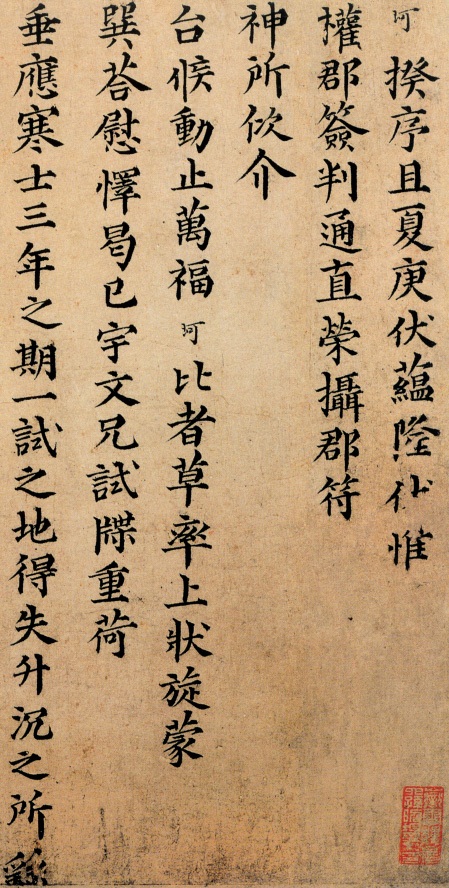 珂揆序且夏庚伏蘊隆伏惟
權郡簽判通直榮攝郡符
神所攸介
台候動止萬福珂比者草率上狀旋蒙
巽荅慰懌曷已宇文兄試牒重荷
垂應寒士三年之期一試之地得失升沉之所